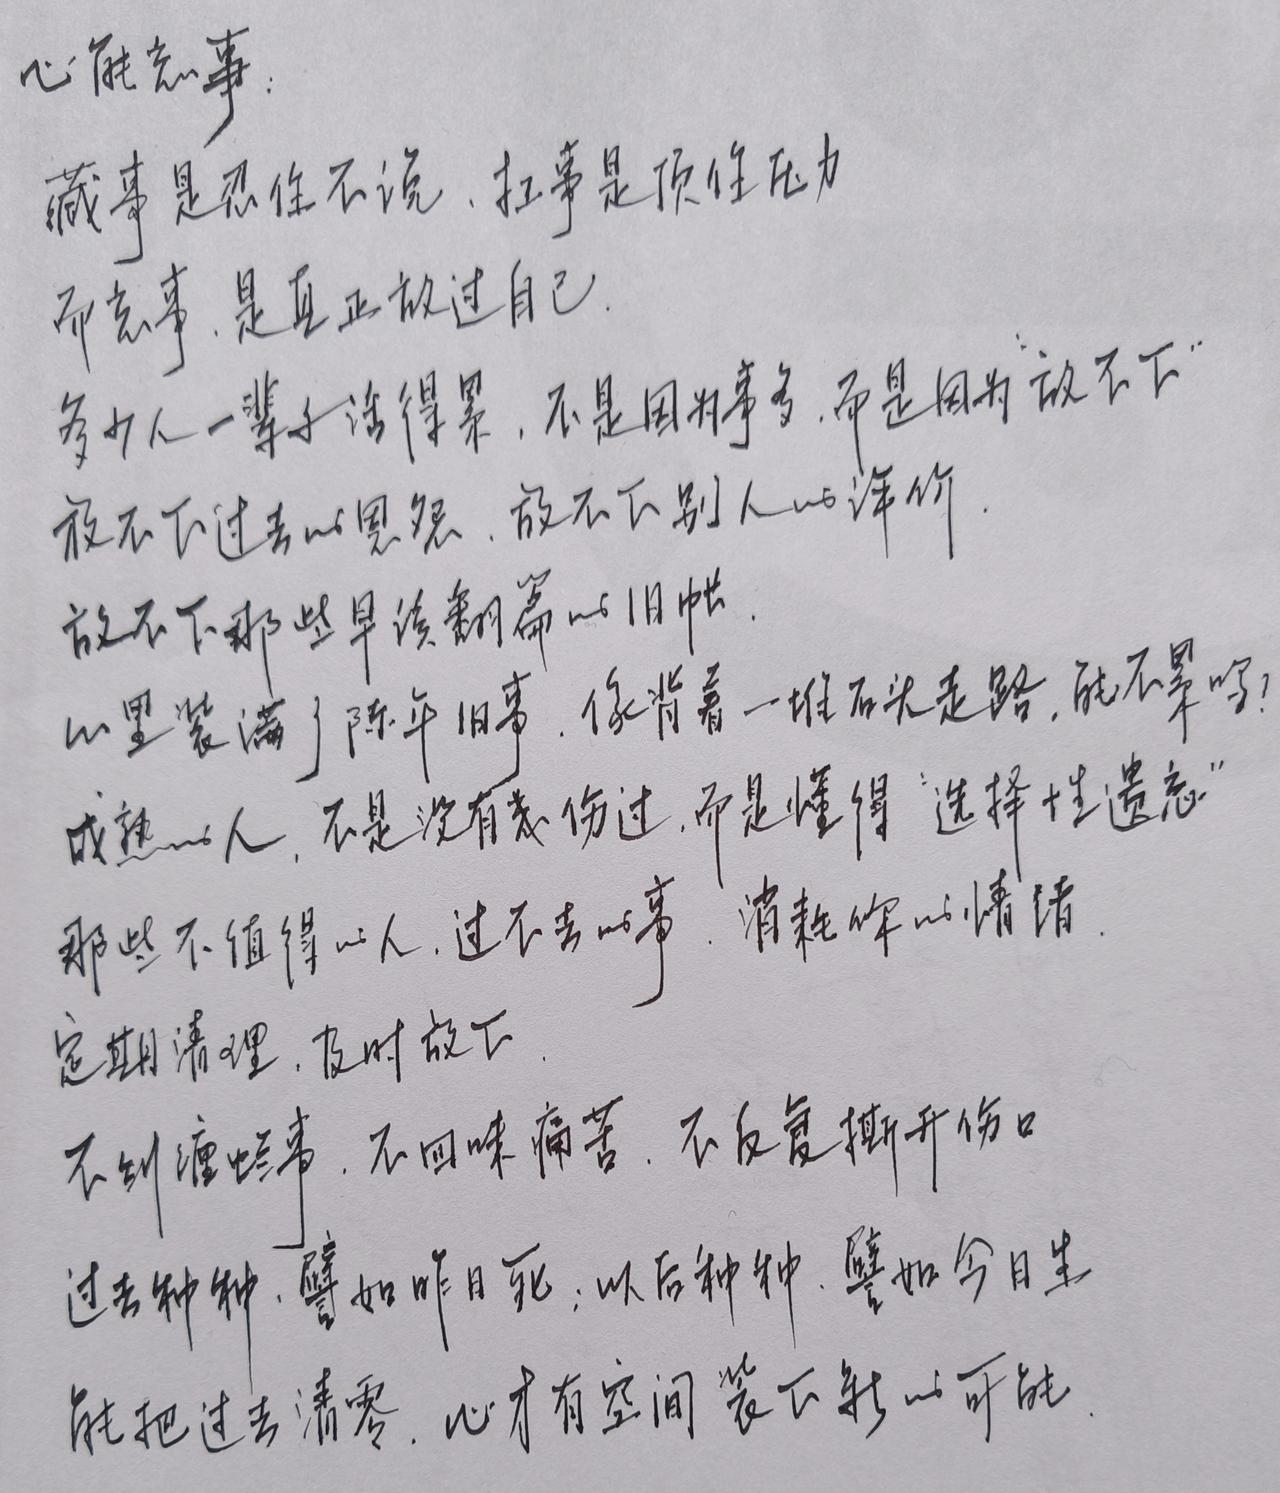 心能忘事:
藏事是忍住不说、扛事是顶住压力
而忘事、是真正放过自己.
多少人一辈子活得累，不是因为事多，而是因为“放不下”
放不下过去的恩怨、放不下别人的评价.
放不下那些早该翻篇的旧帐.
心里装满了陈年旧事、像背着一堆石头走路，能不累吗?
成熟的人、不是没有被伤过，而是懂得“选择性遗忘”
那些不值得的人、过不去的事、消耗你的情绪.
定期清理、及时放下.
不纠缠烂事、不回味痛苦、不反复撕开伤口
过去种种、譬如昨日死；以后种种、譬如今日生
能把过去清零、心才有空间装下新的可能.